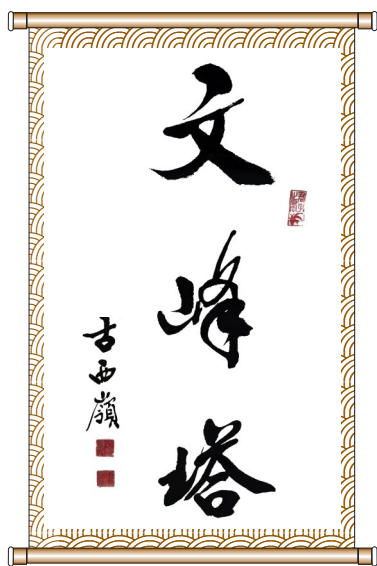 文峰塔
古西嶺